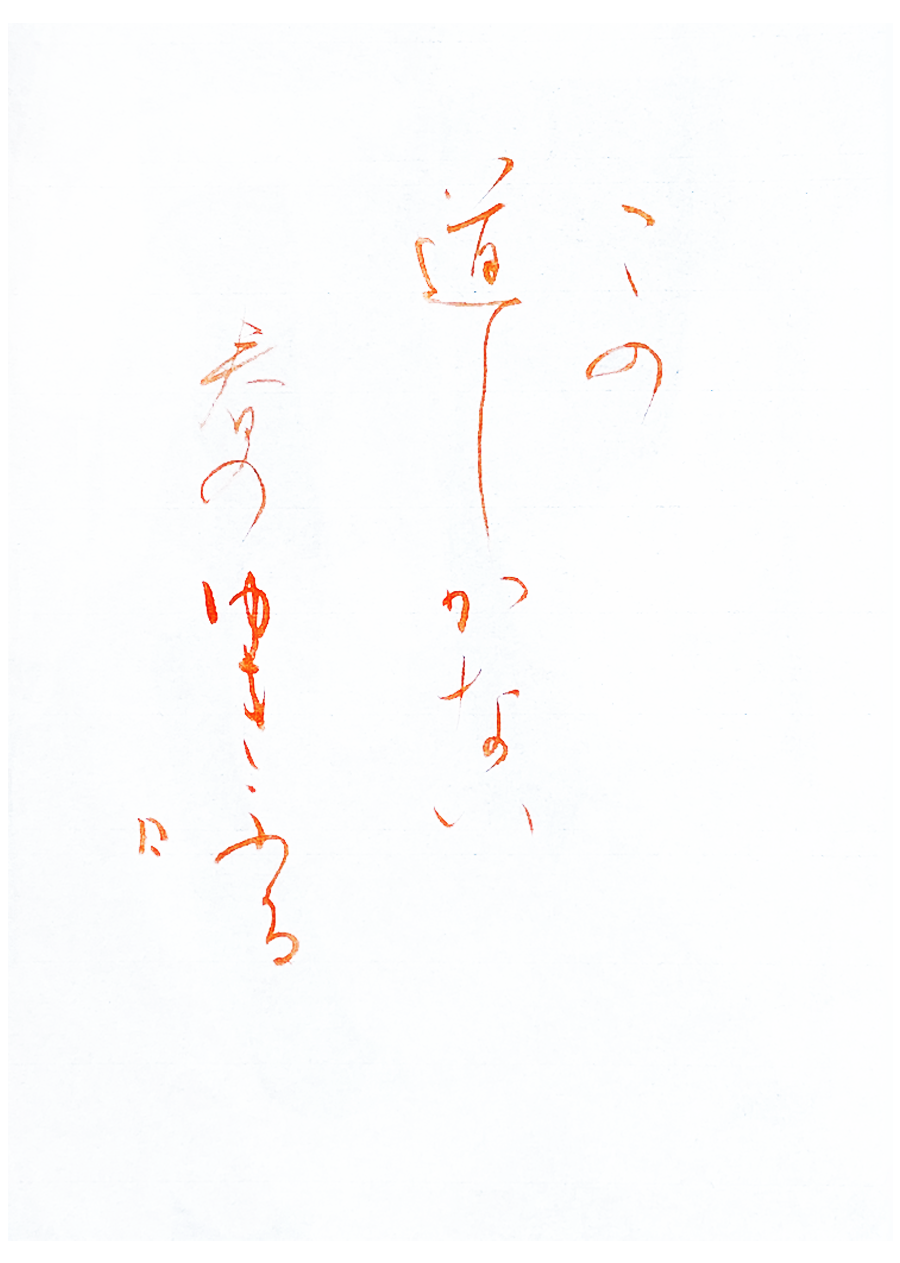 この
道しかない
春のゆきふる